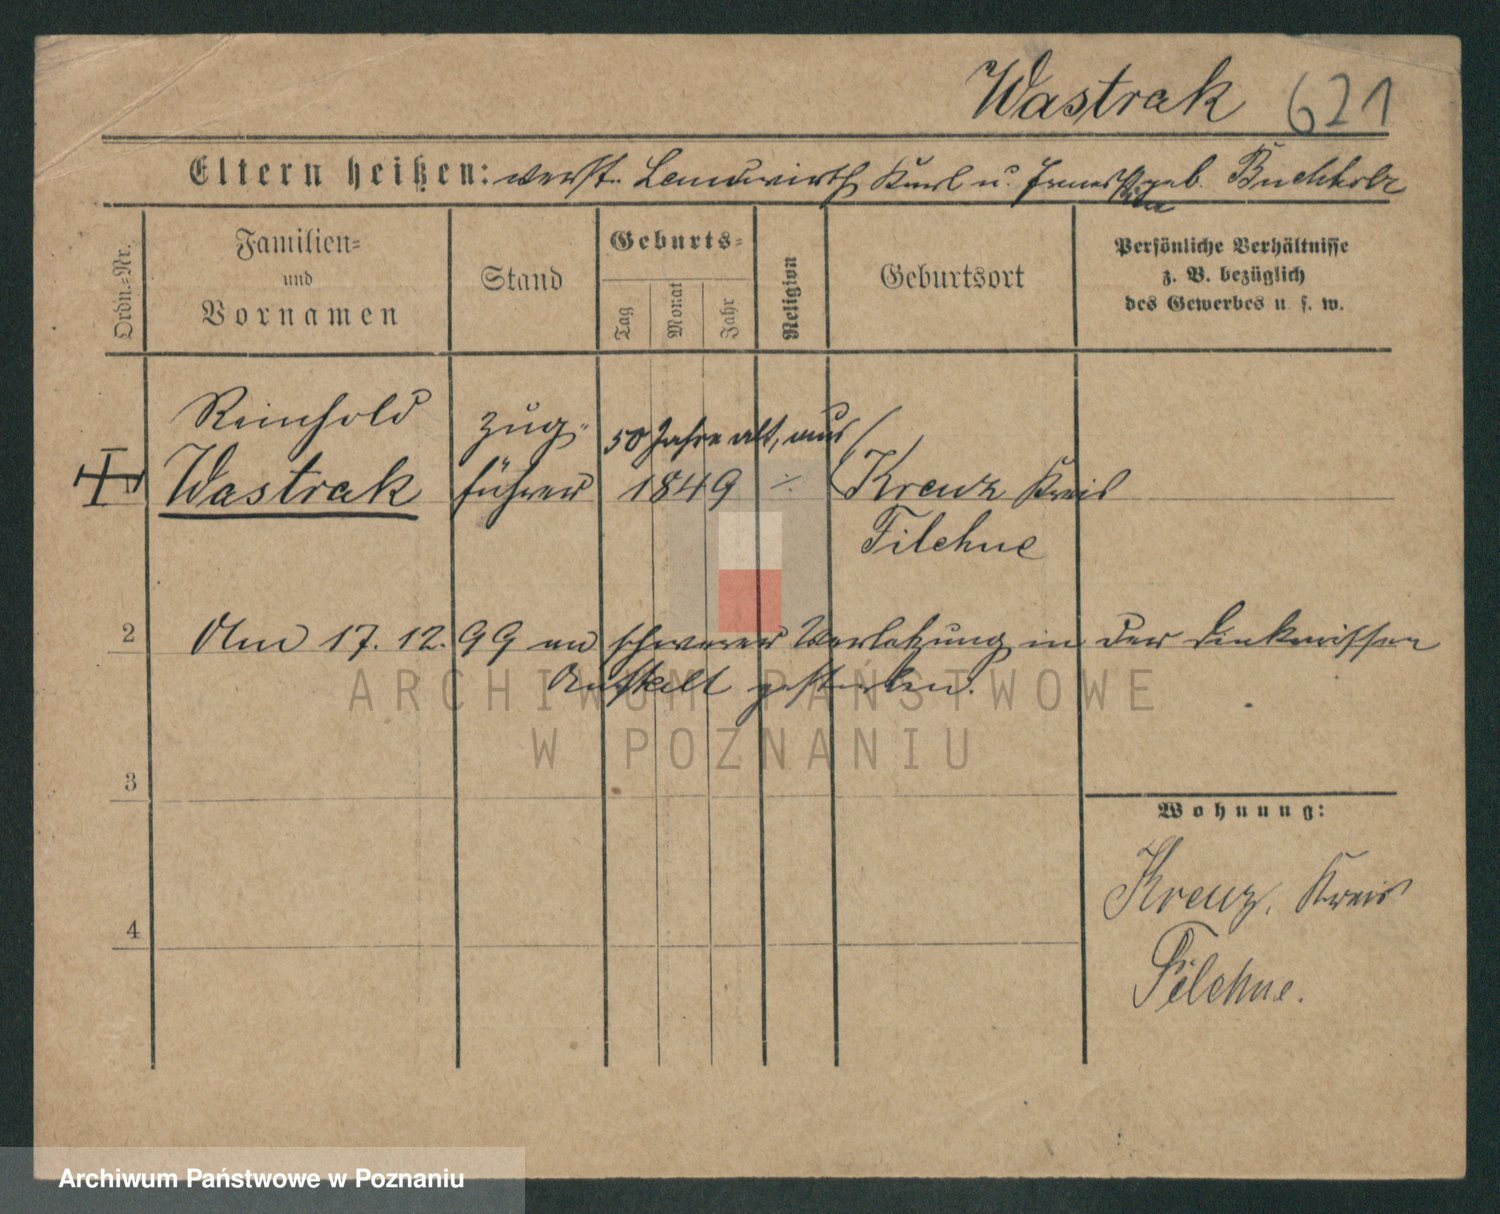 Wastrak 621
Eltern heißen: verst. Landwirth Karl u. Ernestine geb. Buchholz
Ordn.-Nr.
Familien-
und
Vornamen
Stand
Geburts-
Tag
Monat
Jahr
Religion
Geburtsort
Persönliche Verhältnisse
z. B. bezüglich
des Gewerbes u. s. w.
Reinhold Zug- 50 Jahre alt, aus
Wastrak führer 1849 Kreuz Kreis
Filehne
2 Am 17.12.99 an schwerer Verletzung in der Diakonissen
Anstalt gestorben.
ARCHIWUM PAŃSTWOWE
W POZNANIU
3
Wohnung:
Kreuz, Kreis
4
Filehne.
Archiwum Państwowe w Poznaniu